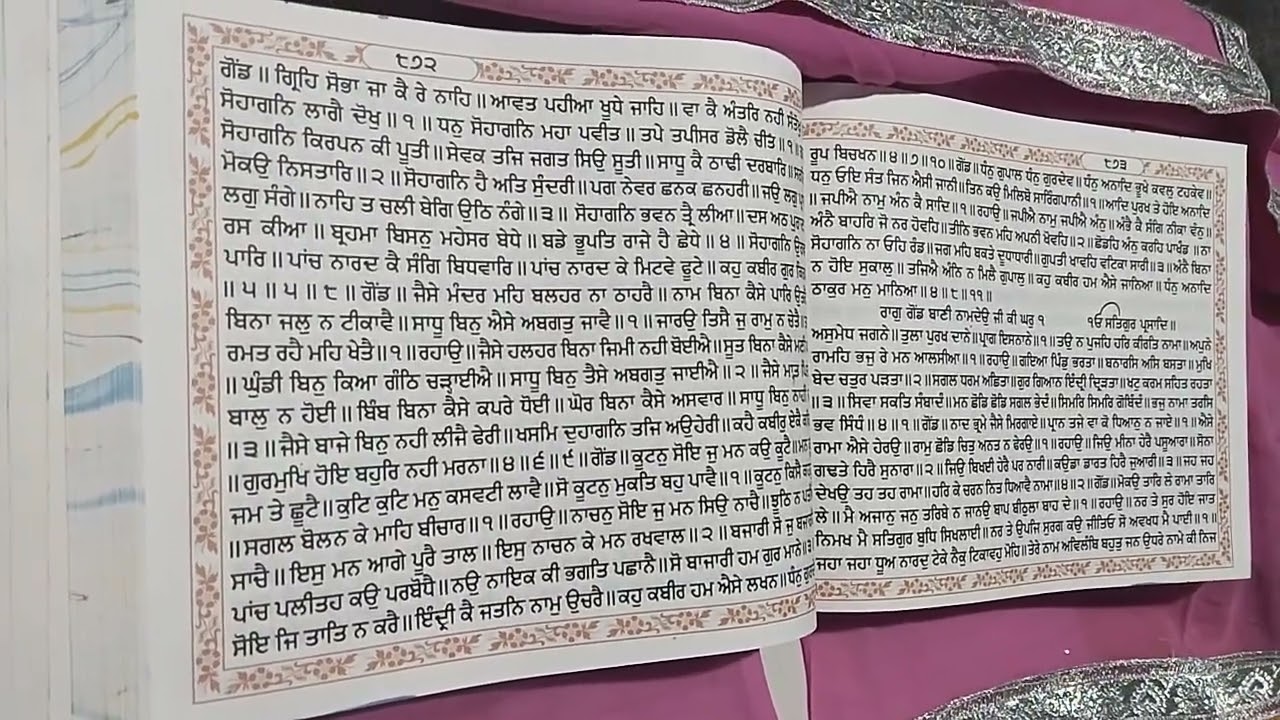 ੮੭੨
ਗੋਂਡ ॥ ਗ੍ਰਿਹਿ ਸੋਭਾ ਜਾ ਕੈ ਰੇ ਨਾਹਿ॥ ਆਵਤ ਪਹੀਆ ਖੂਧੇ ਜਾਹਿ॥ ਵਾ ਕੈ ਅੰਤਰਿ ਨਹੀ
ਸੋਹਾਗਨਿ ਲਾਗੈ ਦੋਖੁ॥ ੧ ॥ ਧਨੁ ਸੋਹਾਗਨਿ ਮਹਾ ਪਵੀਤ॥ ਤਪੇ ਤਪੀਸਰ ਡੋਲੈ ਚੀਤ॥੧॥
ਸੋਹਾਗਨਿ ਕਿਰਪਨ ਕੀ ਪੂਤੀ॥ਸੇਵਕ ਤਜਿ ਜਗਤ ਸਿਉ ਸੂਤੀ॥ਸਾਧੂ ਕੈ ਠਾਢੀ ਦਰਬਾਰਿ॥
ਮੋਕਉ ਨਿਸਤਾਰਿ॥੨॥ਸੋਹਾਗਨਿ ਹੈ ਅਤਿ ਸੁੰਦਰੀ॥ਪਗ ਨੇਵਰ ਛਨਕ ਛਨਹਰੀ॥ਜਉ ਲਗੁ
ਲਗੁ ਸੰਗੇ॥ਨਾਹਿ ਤ ਚਲੀ ਬੇਗਿ ਉਠਿ ਨੰਗੇ॥੩॥ ਸੋਹਾਗਨਿ ਭਵਨ ਤ੍ਰੈ ਲੀਆ॥ਦਸ ਅਠ
ਰਸ ਕੀਆ॥ ਬ੍ਰਹਮਾ ਬਿਸਨੁ ਮਹੇਸਰ ਬੇਧੇ॥ ਬਡੇ ਭੂਪਤਿ ਰਾਜੇ ਹੈ ਛੇਧੇ॥ ੪॥ ਸੋਹਾਗਨਿ
ਪਾਰਿ॥ ਪਾਂਚ ਨਾਰਦ ਕੈ ਸੰਗਿ ਬਿਧਵਾਰਿ॥ਪਾਂਚ ਨਾਰਦ ਕੇ ਮਿਟਵੇ ਫੂਟੇ॥ਕਹੁ ਕਬੀਰ ਗੁਰ
॥ ੫॥ ੫॥ ੮॥ ਗੋਂਡ॥ ਜੈਸੇ ਮੰਦਰ ਮਹਿ ਬਲਹਰ ਨਾ ਠਾਹਰੈ॥ਨਾਮ ਬਿਨਾ ਕੈਸੇ ਪਾਰਿ
ਬਿਨਾ ਜਲੁ ਨ ਟੀਕਾਵੈ॥ਸਾਧੂ ਬਿਨੁ ਐਸੇ ਅਬਗਤੁ ਜਾਵੈ॥੧॥ਜਾਰਉ ਤਿਸੈ ਜੁ ਰਾਮੁ ਨ ਚੇਤੈ॥
ਰਮਤ ਰਹੈ ਮਹਿ ਖੇਤੈ॥੧॥ਰਹਾਉ॥ਜੈਸੇ ਹਲਹਰ ਬਿਨਾ ਜਿਮੀ ਨਹੀ ਬੋਈਐ॥ਸੂਤ ਬਿਨਾ ਕੈਸੇ
॥ਘੁੰਡੀ ਬਿਨੁ ਕਿਆ ਗੰਠਿ ਚੜ੍ਹਾਈਐ॥ਸਾਧੂ ਬਿਨੁ ਤੈਸੇ ਅਬਗਤੁ ਜਾਈਐ॥੨॥ ਜੈਸੇ ਮਾਤ
ਬਾਲੁ ਨ ਹੋਈ॥ ਬਿੰਬ ਬਿਨਾ ਕੈਸੇ ਕਪਰੇ ਧੋਈ॥ਘੋਰ ਬਿਨਾ ਕੈਸੇ ਅਸਵਾਰ॥ਸਾਧੂ ਬਿਨੁ
॥੩॥ਜੈਸੇ ਬਾਜੇ ਬਿਨੁ ਨਹੀ ਲੀਜੈ ਫੇਰੀ॥ਖਸਮਿ ਦੁਹਾਗਨਿ ਤਜਿ ਅਉਹੇਰੀ॥ਕਹੈ ਕਬੀਰੁ ਏਕੈ
॥ਗੁਰਮੁਖਿ ਹੋਇ ਬਹੁਰਿ ਨਹੀ ਮਰਨਾ॥੪॥੬॥੯॥ਗੋਂਡ॥ਕੂਟਨੁ ਸੋਇ ਜੁ ਮਨ ਕਉ ਕੂਟੈ॥
ਜਮ ਤੇ ਛੂਟੈ॥ਕੁਟਿ ਕੁਟਿ ਮਨੁ ਕਸਵਟੀ ਲਾਵੈ॥ਸੋ ਕੂਟਨੁ ਮੁਕਤਿ ਬਹੁ ਪਾਵੈ॥੧॥ਕੂਟਨੁ ਕਿਸੈ
॥ਸਗਲ ਬੋਲਨ ਕੇ ਮਾਹਿ ਬੀਚਾਰ॥੧॥ਰਹਾਉ॥ਨਾਚਨੁ ਸੋਇ ਜੁ ਮਨ ਸਿਉ ਨਾਚੈ॥ਝੂਠਿ ਨ
ਸਾਚੈ॥ਇਸੁ ਮਨ ਆਗੇ ਪੂਰੈ ਤਾਲ॥ਇਸੁ ਨਾਚਨ ਕੇ ਮਨ ਰਖਵਾਲ॥੨॥ਬਜਾਰੀ ਸੋ ਜੁ
ਪਾਂਚ ਪਲੀਤਹ ਕਉ ਪਰਬੋਧੈ॥ਨਉ ਨਾਇਕ ਕੀ ਭਗਤਿ ਪਛਾਨੈ॥ਸੋ ਬਾਜਾਰੀ ਹਮ ਗੁਰ ਮਾਨੇ॥
ਸੋਇ ਜਿ ਤਾਤਿ ਨ ਕਰੈ॥ਇੰਦ੍ਰੀ ਕੈ ਜਤਨਿ ਨਾਮੁ ਉਚਰੈ॥ਕਹੁ ਕਬੀਰ ਹਮ ਐਸੇ ਲਖਨ॥ਧੰਨੁ
੮੭੩
ਰੂਪ ਬਿਚਖਨ॥੪॥੭॥੧੦॥ਗੋਂਡ॥ਧੰਨੁ ਗੁਪਾਲ ਧੰਨੁ ਗੁਰਦੇਵ॥ਧੰਨੁ ਅਨਾਦਿ ਭੂਖੇ ਕਵਲੁ ਟਹਕੇਵ॥
ਧਨੁ ਓਇ ਸੰਤ ਜਿਨ ਐਸੀ ਜਾਨੀ॥ਤਿਨ ਕਉ ਮਿਲਿਬੋ ਸਾਰਿੰਗਪਾਨੀ॥੧॥ਆਦਿ ਪੁਰਖ ਤੇ ਹੋਇ ਅਨਾਦਿ
॥ਜਪੀਐ ਨਾਮੁ ਅੰਨ ਕੈ ਸਾਦਿ॥੧॥ਰਹਾਉ॥ਜਪੀਐ ਨਾਮੁ ਜਪੀਐ ਅੰਨੁ॥ਅੰਭੈ ਕੈ ਸੰਗਿ ਨੀਕਾ ਵੰਨੁ॥
ਅੰਨੈ ਬਾਹਰਿ ਜੋ ਨਰ ਹੋਵਹਿ॥ਤੀਨਿ ਭਵਨ ਮਹਿ ਅਪਨੀ ਖੋਵਹਿ॥੨॥ਛੋਡਹਿ ਅੰਨੁ ਕਰਹਿ ਪਾਖੰਡ॥ਨਾ
ਸੋਹਾਗਨਿ ਨਾ ਓਹਿ ਰੰਡ॥ਜਗ ਮਹਿ ਬਕਤੇ ਦੂਧਾਧਾਰੀ॥ਗੁਪਤੀ ਖਾਵਹਿ ਵਟਿਕਾ ਸਾਰੀ॥੩॥ਅੰਨੈ ਬਿਨਾ
ਨ ਹੋਇ ਸੁਕਾਲੁ॥ਤਜਿਐ ਅੰਨਿ ਨ ਮਿਲੈ ਗੁਪਾਲੁ॥ਕਹੁ ਕਬੀਰ ਹਮ ਐਸੇ ਜਾਨਿਆ॥ਧੰਨੁ ਅਨਾਦਿ
ਠਾਕੁਰ ਮਨੁ ਮਾਨਿਆ॥੪॥੮॥੧੧॥
ਰਾਗੁ ਗੋਂਡ ਬਾਣੀ ਨਾਮਦੇਉ ਜੀ ਕੀ ਘਰੁ ੧ ੴ ਸਤਿਗੁਰ ਪ੍ਰਸਾਦਿ॥
ਅਸੁਮੇਧ ਜਗਨੇ॥ਤੁਲਾ ਪੁਰਖ ਦਾਨੇ॥ਪ੍ਰਾਗ ਇਸਨਾਨੇ॥੧॥ਤਉ ਨ ਪੁਜਹਿ ਹਰਿ ਕੀਰਤਿ ਨਾਮਾ॥ਅਪੁਨੇ
ਰਾਮਹਿ ਭਜੁ ਰੇ ਮਨ ਆਲਸੀਆ॥੧॥ਰਹਾਉ॥ਗਇਆ ਪਿੰਡੁ ਭਰਤਾ॥ਬਨਾਰਸਿ ਅਸਿ ਬਸਤਾ॥ਮੁਖਿ
ਬੇਦ ਚਤੁਰ ਪੜਤਾ॥੨॥ਸਗਲ ਧਰਮ ਅਛਿਤਾ॥ਗੁਰ ਗਿਆਨ ਇੰਦ੍ਰੀ ਦ੍ਰਿੜਤਾ॥ਖਟੁ ਕਰਮ ਸਹਿਤ ਰਹਤਾ
॥੩॥ਸਿਵਾ ਸਕਤਿ ਸੰਬਾਦੰ॥ਮਨ ਛੋਡਿ ਛੋਡਿ ਸਗਲ ਭੇਦੰ॥ਸਿਮਰਿ ਸਿਮਰਿ ਗੋਬਿੰਦੰ॥ਭਜੁ ਨਾਮਾ ਤਰਸਿ
ਭਵ ਸਿੰਧੰ॥੪॥੧॥ਗੋਂਡ॥ਨਾਦ ਭ੍ਰਮੇ ਜੈਸੇ ਮਿਰਗਾਏ॥ਪ੍ਰਾਨ ਤਜੇ ਵਾ ਕੋ ਧਿਆਨੁ ਨ ਜਾਏ॥੧॥ਐਸੇ
ਰਾਮਾ ਐਸੇ ਹੇਰਉ॥ਰਾਮੁ ਛੋਡਿ ਚਿਤੁ ਅਨਤ ਨ ਫੇਰਉ॥੧॥ਰਹਾਉ॥ਜਿਉ ਮੀਨਾ ਹੇਰੈ ਪਸੂਆਰਾ॥ਸੋਨਾ
ਗਢਤੇ ਹਿਰੈ ਸੁਨਾਰਾ॥੨॥ਜਿਉ ਬਿਖਈ ਹੇਰੈ ਪਰ ਨਾਰੀ॥ਕਉਡਾ ਡਾਰਤ ਹਿਰੈ ਜੁਆਰੀ॥੩॥ਜਹ ਜਹ
ਦੇਖਉ ਤਹ ਤਹ ਰਾਮਾ॥ਹਰਿ ਕੇ ਚਰਨ ਨਿਤ ਧਿਆਵੈ ਨਾਮਾ॥੪॥੨॥ਗੋਂਡ॥ਮੋਕਉ ਤਾਰਿ ਲੇ ਰਾਮਾ ਤਾਰਿ
ਲੇ॥ ਮੈ ਅਜਾਨੁ ਜਨੁ ਤਰਿਬੇ ਨ ਜਾਨਉ ਬਾਪ ਬੀਠੁਲਾ ਬਾਹ ਦੇ॥੧॥ਰਹਾਉ॥ ਨਰ ਤੇ ਸੁਰ ਹੋਇ ਜਾਤ
ਨਿਮਖ ਮੈ ਸਤਿਗੁਰ ਬੁਧਿ ਸਿਖਲਾਈ॥ਨਰ ਤੇ ਉਪਜਿ ਸੁਰਗ ਕਉ ਜੀਤਿਓ ਸੋ ਅਵਖਧ ਮੈ ਪਾਈ॥੧॥
ਜਹਾ ਜਹਾ ਧੂਅ ਨਾਰਦੁ ਟੇਕੇ ਨੈਕੁ ਟਿਕਾਵਹੁ ਮੋਹਿ॥ਤੇਰੇ ਨਾਮ ਅਵਿਲੰਬਿ ਬਹੁਤੁ ਜਨ ਉਧਰੇ ਨਾਮੇ ਕੀ ਨਿਜ